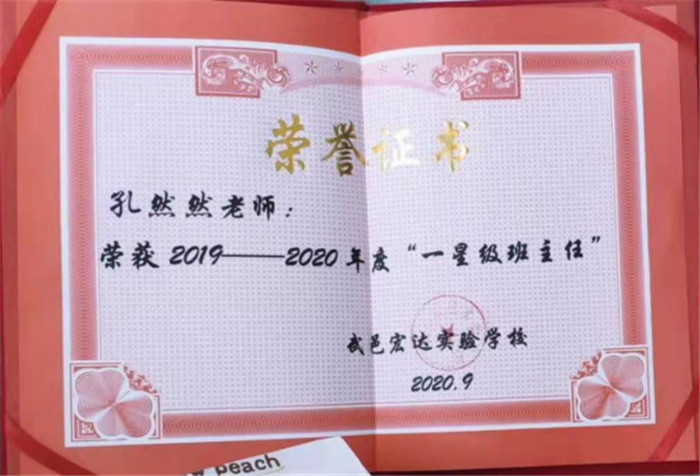 荣誉证书
孔然然老师：
荣获2019——2020年度“一星级班主任”
武邑宏达实验学校
2020.9
peach